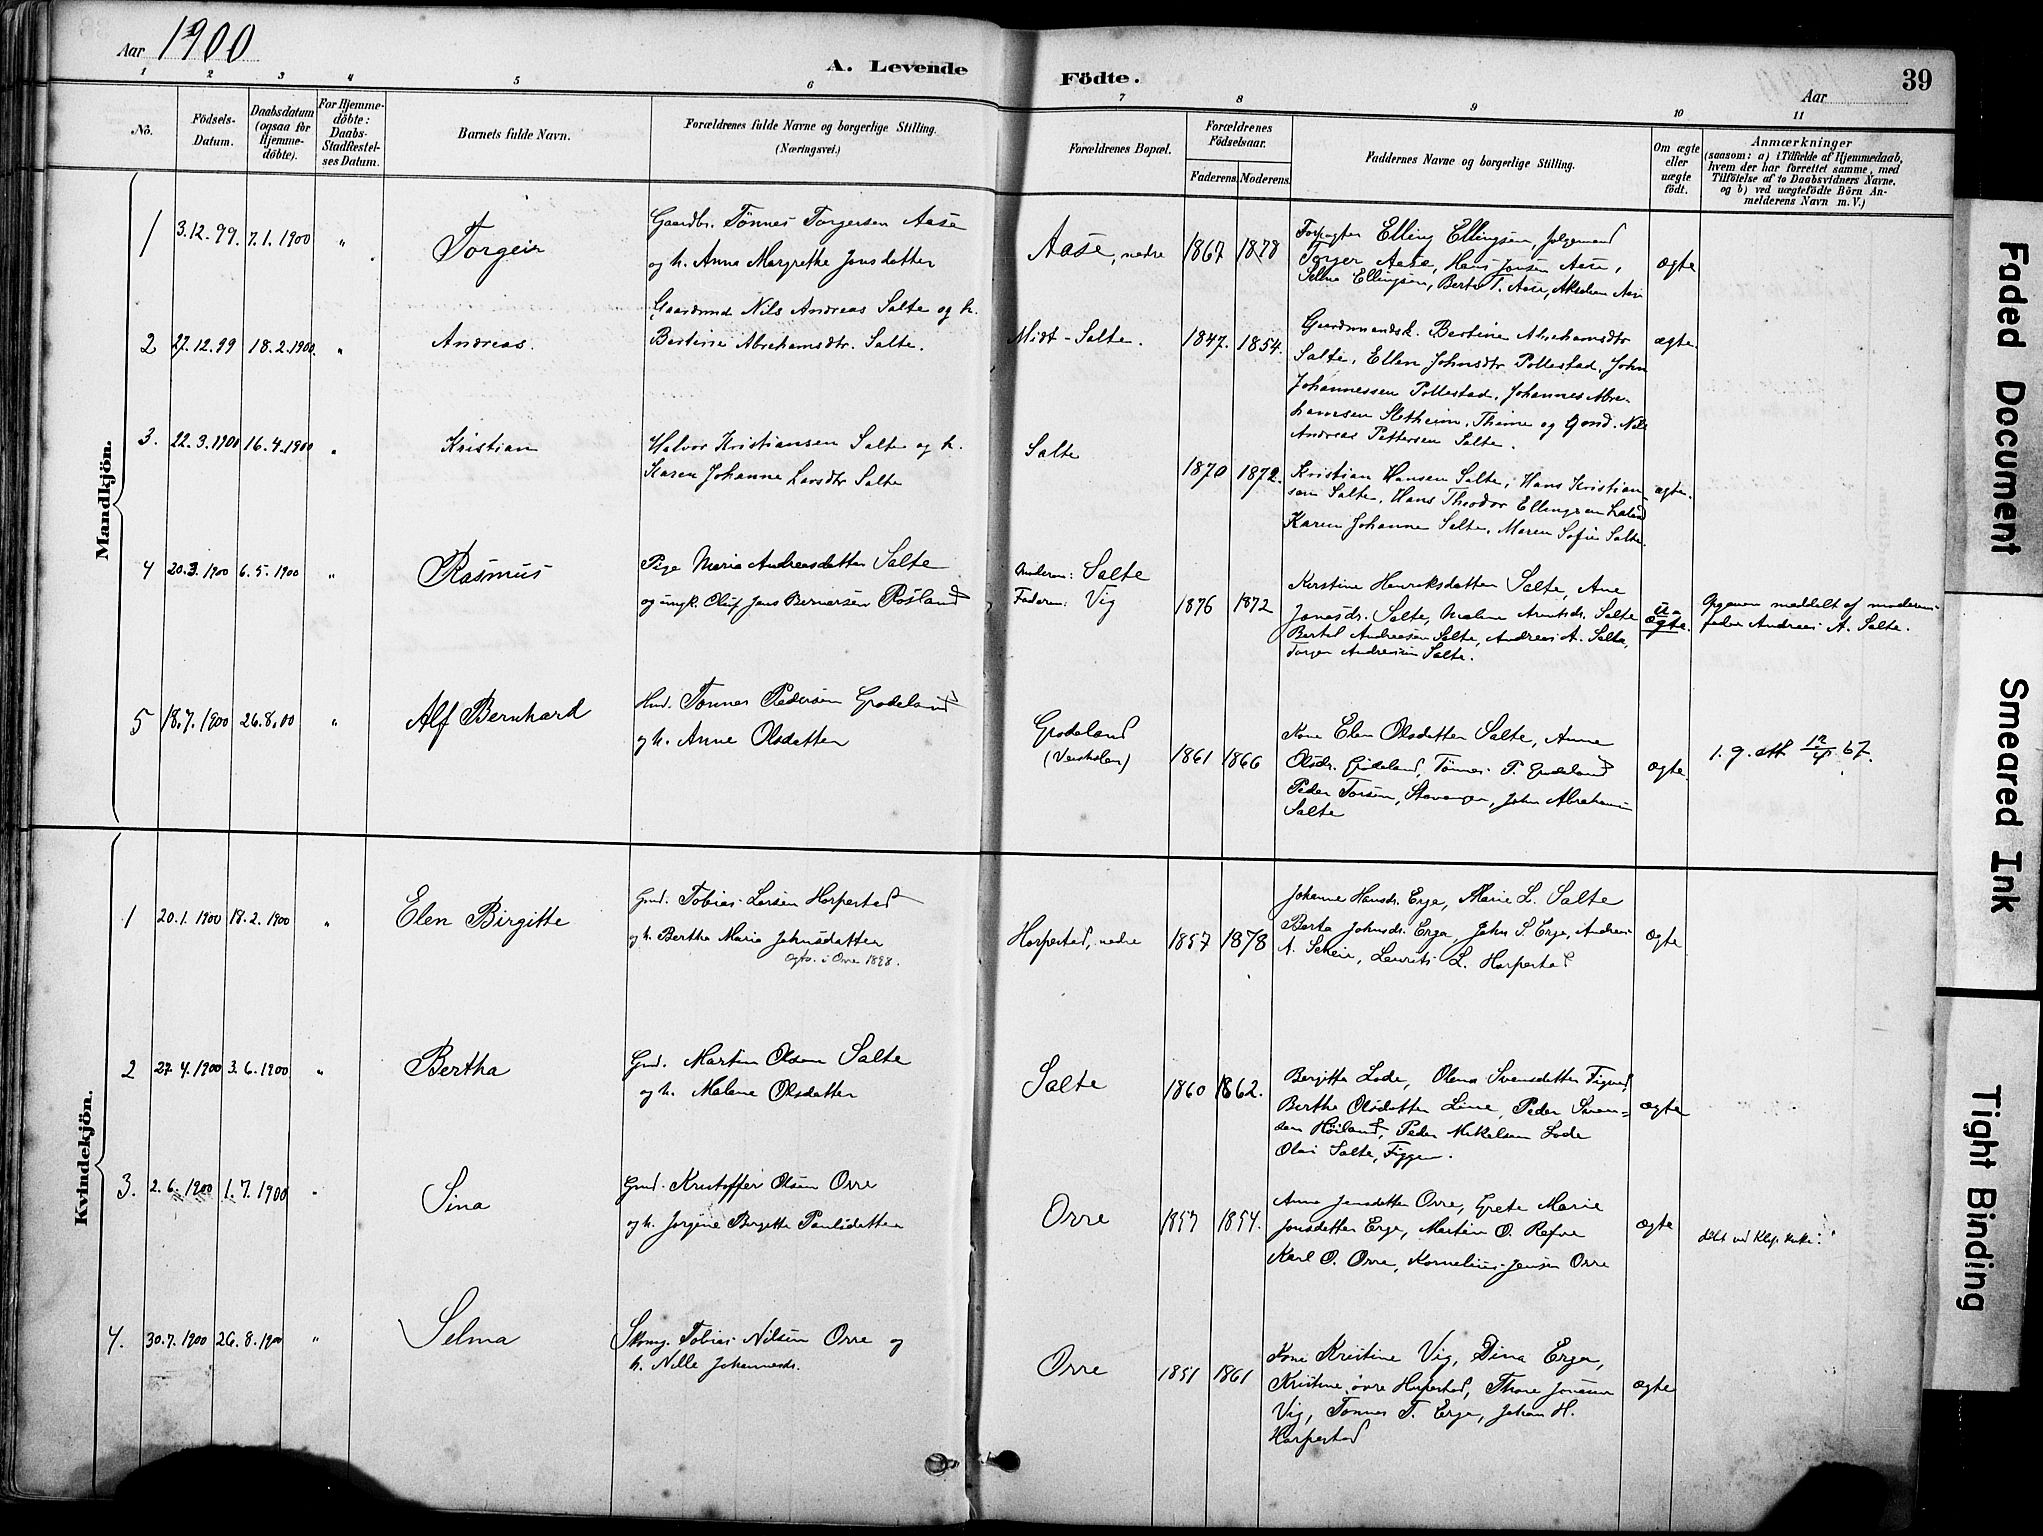 Aar 1900
A. Levende Födte.
39
Aar
1 2 3 4 5 6 7 8 9 10 11
No.
Födsels-Datum.
Daabsdatum (ogsaa for Hjemme-döbte).
For Hjemme-döbte: Daabs-Stadfæstel-ses Datum.
Barnets fulde Navn.
Forældrenes fulde Navne og borgerlige Stilling.
(Næringsvei.)
Forældrenes Bopæl.
Forældrenes Födselsaar.
Faderens. Moderens.
Faddernes Navne og borgerlige Stilling.
Om ægte eller uægte födt.
Anmærkninger
(saasom: a) i Tilfælde af Hjemmedaab,
hvem der har forrettet samme, med
Tilföielse af to Daabsvidners Navne.
og b) ved uægtefödte Börn An-
melderens Navn m. V.)
Mandkjön.
1 3.12.99. 7.1.1900 " Torgeir
Gaardbr. Tønnes Torgersen Aase
og h. Anna Margrethe Jonsdatter
Aase, nedre 1867 1878
Forpagter Elling Ellingsen,
Torger Aase, Hans Jonsen Aase,
Selma Ellingsen, Berta T. Aase, Akselsen Aase
ægte
2 27.12.99 18.2.1900. " Andreas.
Gaardmd Nils Andreas Salte og h.
Bertine Abrahamsdtr. Salte.
Midt-Salte. 1847. 1854.
Gaardmandsk. Bertine Abrahamsdtr
Salte, Ellen Johnsdtr Pollestad, John
Johannessen Pollestad, Johannes Abra-
hamsen Sletheim, Thime og Gmd. Nils
Andreas Pettersen Salte.
ægte.
3. 22.3.1900 16.4.1900 " Kristian
Halvor Kristiansen Salte og h.
Karen Johanne Larsdtr Salte
Salte 1870 1872.
Kristian Hansen Salte, Hans Kristian-
sen Salte, Hans Theodor Ellingsen
Karen Johanne Salte, Maren Sofie Salte.
ægte.
4 20.3.1900 6.5.1900 " Rasmus
Pige Maria Andreasdatter Salte
og ungk. Oluf Jens Bernersen Røsland
Moderen: Salte
Faderen: Vig
1876 1872
Kirstine Henriksdatter Salte, Ane
Jonasdr. Salte, Malene Arntsdr. Salte
Bertel Andreasen Salte, Andreas A. Salte,
Torger Andreasen Salte.
u-ægte.
Opgaven meddelt af moderens
fader Andreas A. Salte.
5 18.7.1900 26.8.00 " Alf Bernhard
Hmd. Tønnes Pedersen Grødeland
og h. Anne Olsdatter
Grødeland
1861 1866
Kone Elen Olsdatter Salte, Anne
Olsdr. Grødeland, Tønnes P. Grødeland
Peder Torsen, Stavanger, John Abrahams
Salte
ægte
1. g. att 12/4 67.
Kvindekjön.
1 20.1.1900 18.2.1900 " Elen Birgitte
Gmd. Tobias Larsen Horpestad
og h. Bertha Maria Johnsdatter
Ægtv. i Orre 1898.
Horpestad, nedre 1857 1878
Johanne Hansdr. Erge, Marie L. Salte
Berta Johnsdr. Erga, John S. Erge, Andreas
A. Skeie, Laurits L. Horpestad
ægte
2 27.4.1900 3.6.1900 " Bertha
Gmd. Martin Olsen Salte
og h. Malene Olsdatter
Salte 1860 1862.
Bergitta Lode, Olena Svensdatter
Bertha Olsdatter Line, Peder Svend-
sen Høiland, Peder Mikelsen Lode
Olai Salte, Figgen.
ægte
3. 2.6.1900 1.7.1900 " Sina
Gmd. Kristoffer Olsen Orre
og h. Jorgine Bergitte Paulsdatter
Orre 1857 1854.
Anna Jensdatter Orre, Grete Marie
Jonsdatter Erge, Martin O. Refve
Karl O. Orre, Kornelius Jensen Orre
ægte
døbt ved Klep kirke.
4. 30.7.1900 26.8.1900 " Selma
Skomg. Tobias Nilsen Orre og
h. Nille Johannesdr.
Orre 1851 1861
Kone Kristine Vig, Dina Erga,
Kristine, øvre Horpestad, Thore Jonsen
Vig, Tønnes T. Erge, Johan H.
Horpestad
ægte
Faded Document
Smeared Ink
Tight Binding